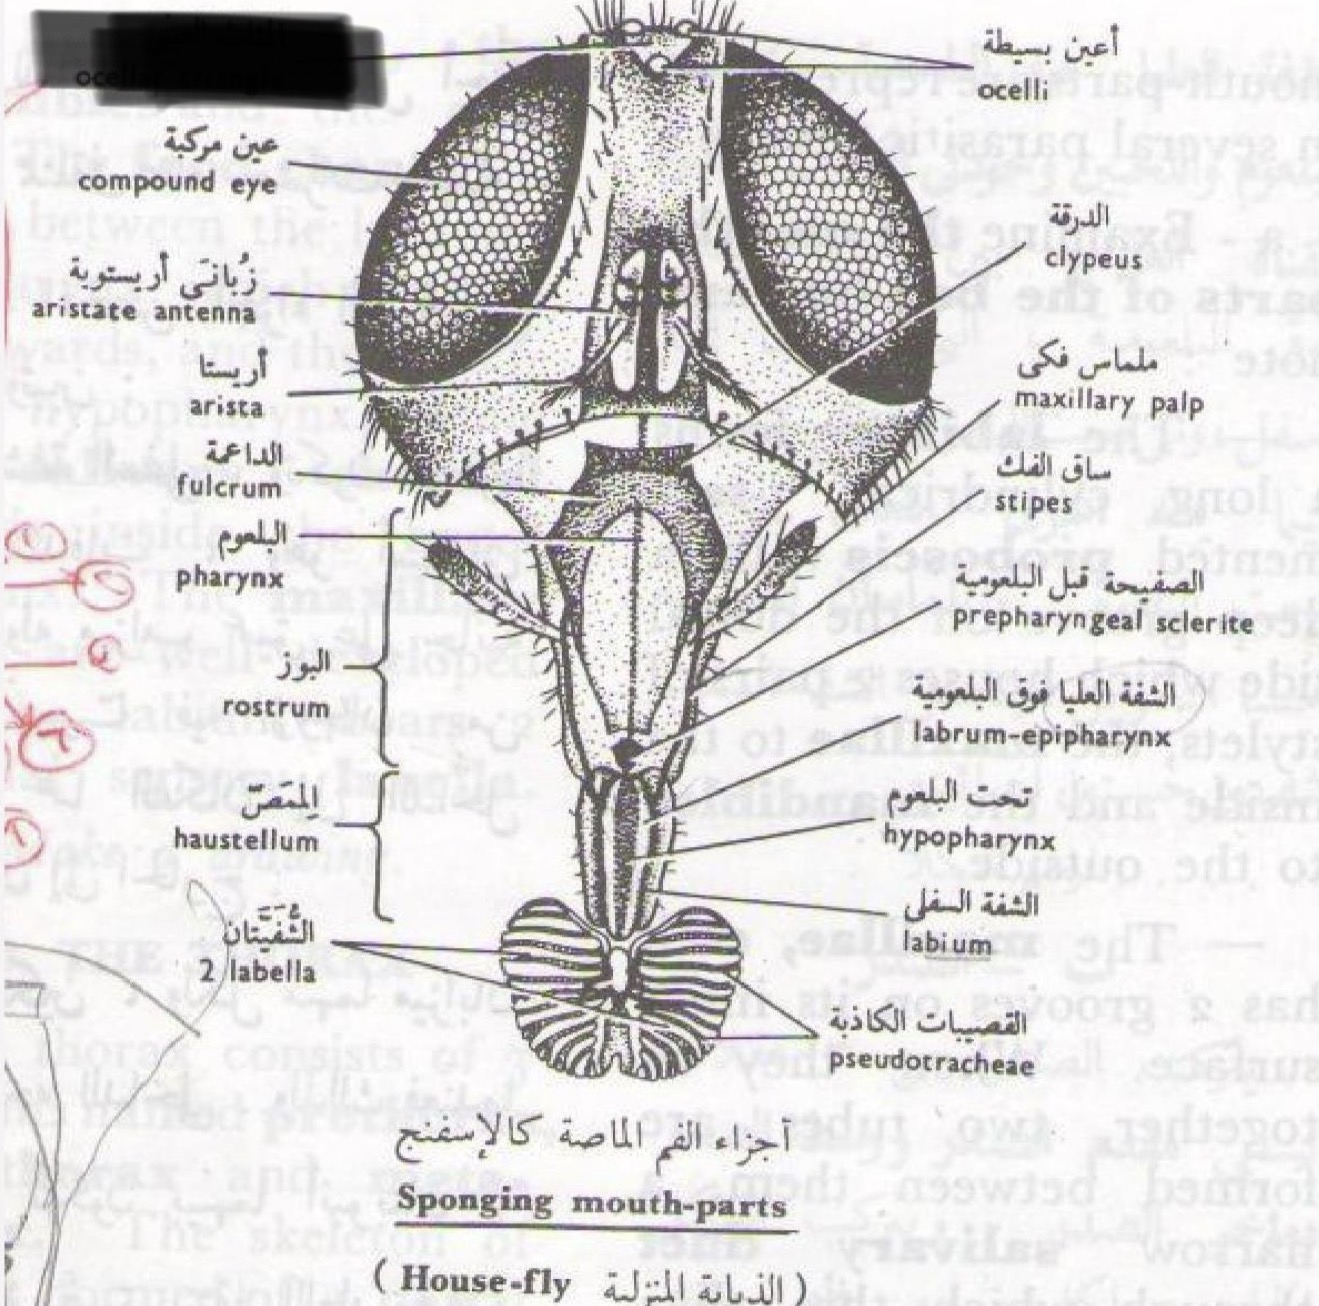 ocellar triangle
عين مركبة
compound eye
زُبانَى أريستوية
aristate antenna
أريستا
arista
الداعمة
fulcrum
البلعوم
pharynx
البوز
rostrum
المِمَصّ
haustellum
الشُّفَيَّتان
2 labella
أعين بسيطة
ocelli
الدرقة
clypeus
ملماس فكى
maxillary palp
ساق الفك
stipes
الصفيحة قبل البلعومية
prepharyngeal sclerite
الشفة العليا فوق البلعومية
labrum-epipharynx
تحت البلعوم
hypopharynx
الشفة السفلى
labium
القصيبات الكاذبة
pseudotracheae
أجزاء الفم الماصة كالإسفنج
Sponging mouth-parts
( House-fly الذبابة المنزلية )